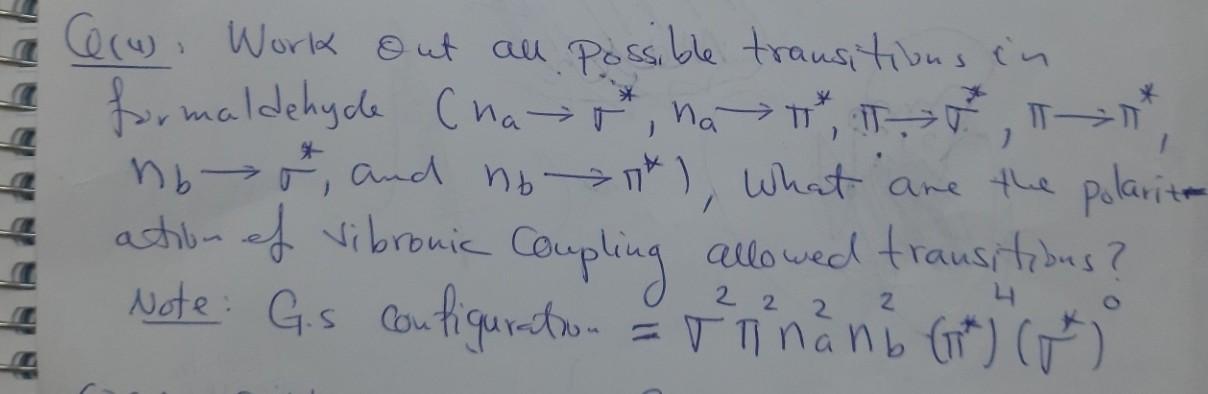 Q(4). Work out all possible transitions in
formaldehyde (na → σ*, na → π*, π → σ*, π → π*,
nb → σ*, and nb → π*), what are the polariz-
ation of vibronic coupling allowed transitions?
Note: G.s configuration = σ² π² na² nb² (π*)⁴ (σ*)⁰